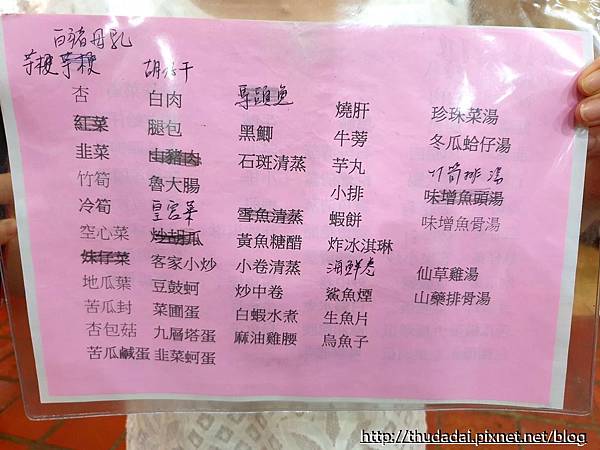 白豬母乳
芋梗 芋梗
杏
紅菜
韭菜
竹筍
冷筍
空心菜
妹仔菜
地瓜葉
苦瓜封
杏包菇
苦瓜鹹蛋
白肉
腿包
山豬肉
魯大腸
皇宮菜
炒胡瓜
客家小炒
豆鼓蚵
菜圃蛋
九層塔蛋
韭菜蚵蛋
黑鯽
石斑清蒸
雪魚清蒸
黃魚糖醋
小卷清蒸
炒中卷
白蝦水煮
麻油雞腰
燒肝
牛蒡
芋丸
小排
蝦餅
炸冰淇琳
海鮮卷
鯊魚煙
生魚片
烏魚子
珍珠菜湯
冬瓜蛤仔湯
竹筍排湯
味增魚頭湯
味增魚骨湯
仙草雞湯
山藥排骨湯
http://thudadai.pixnet.net/blog